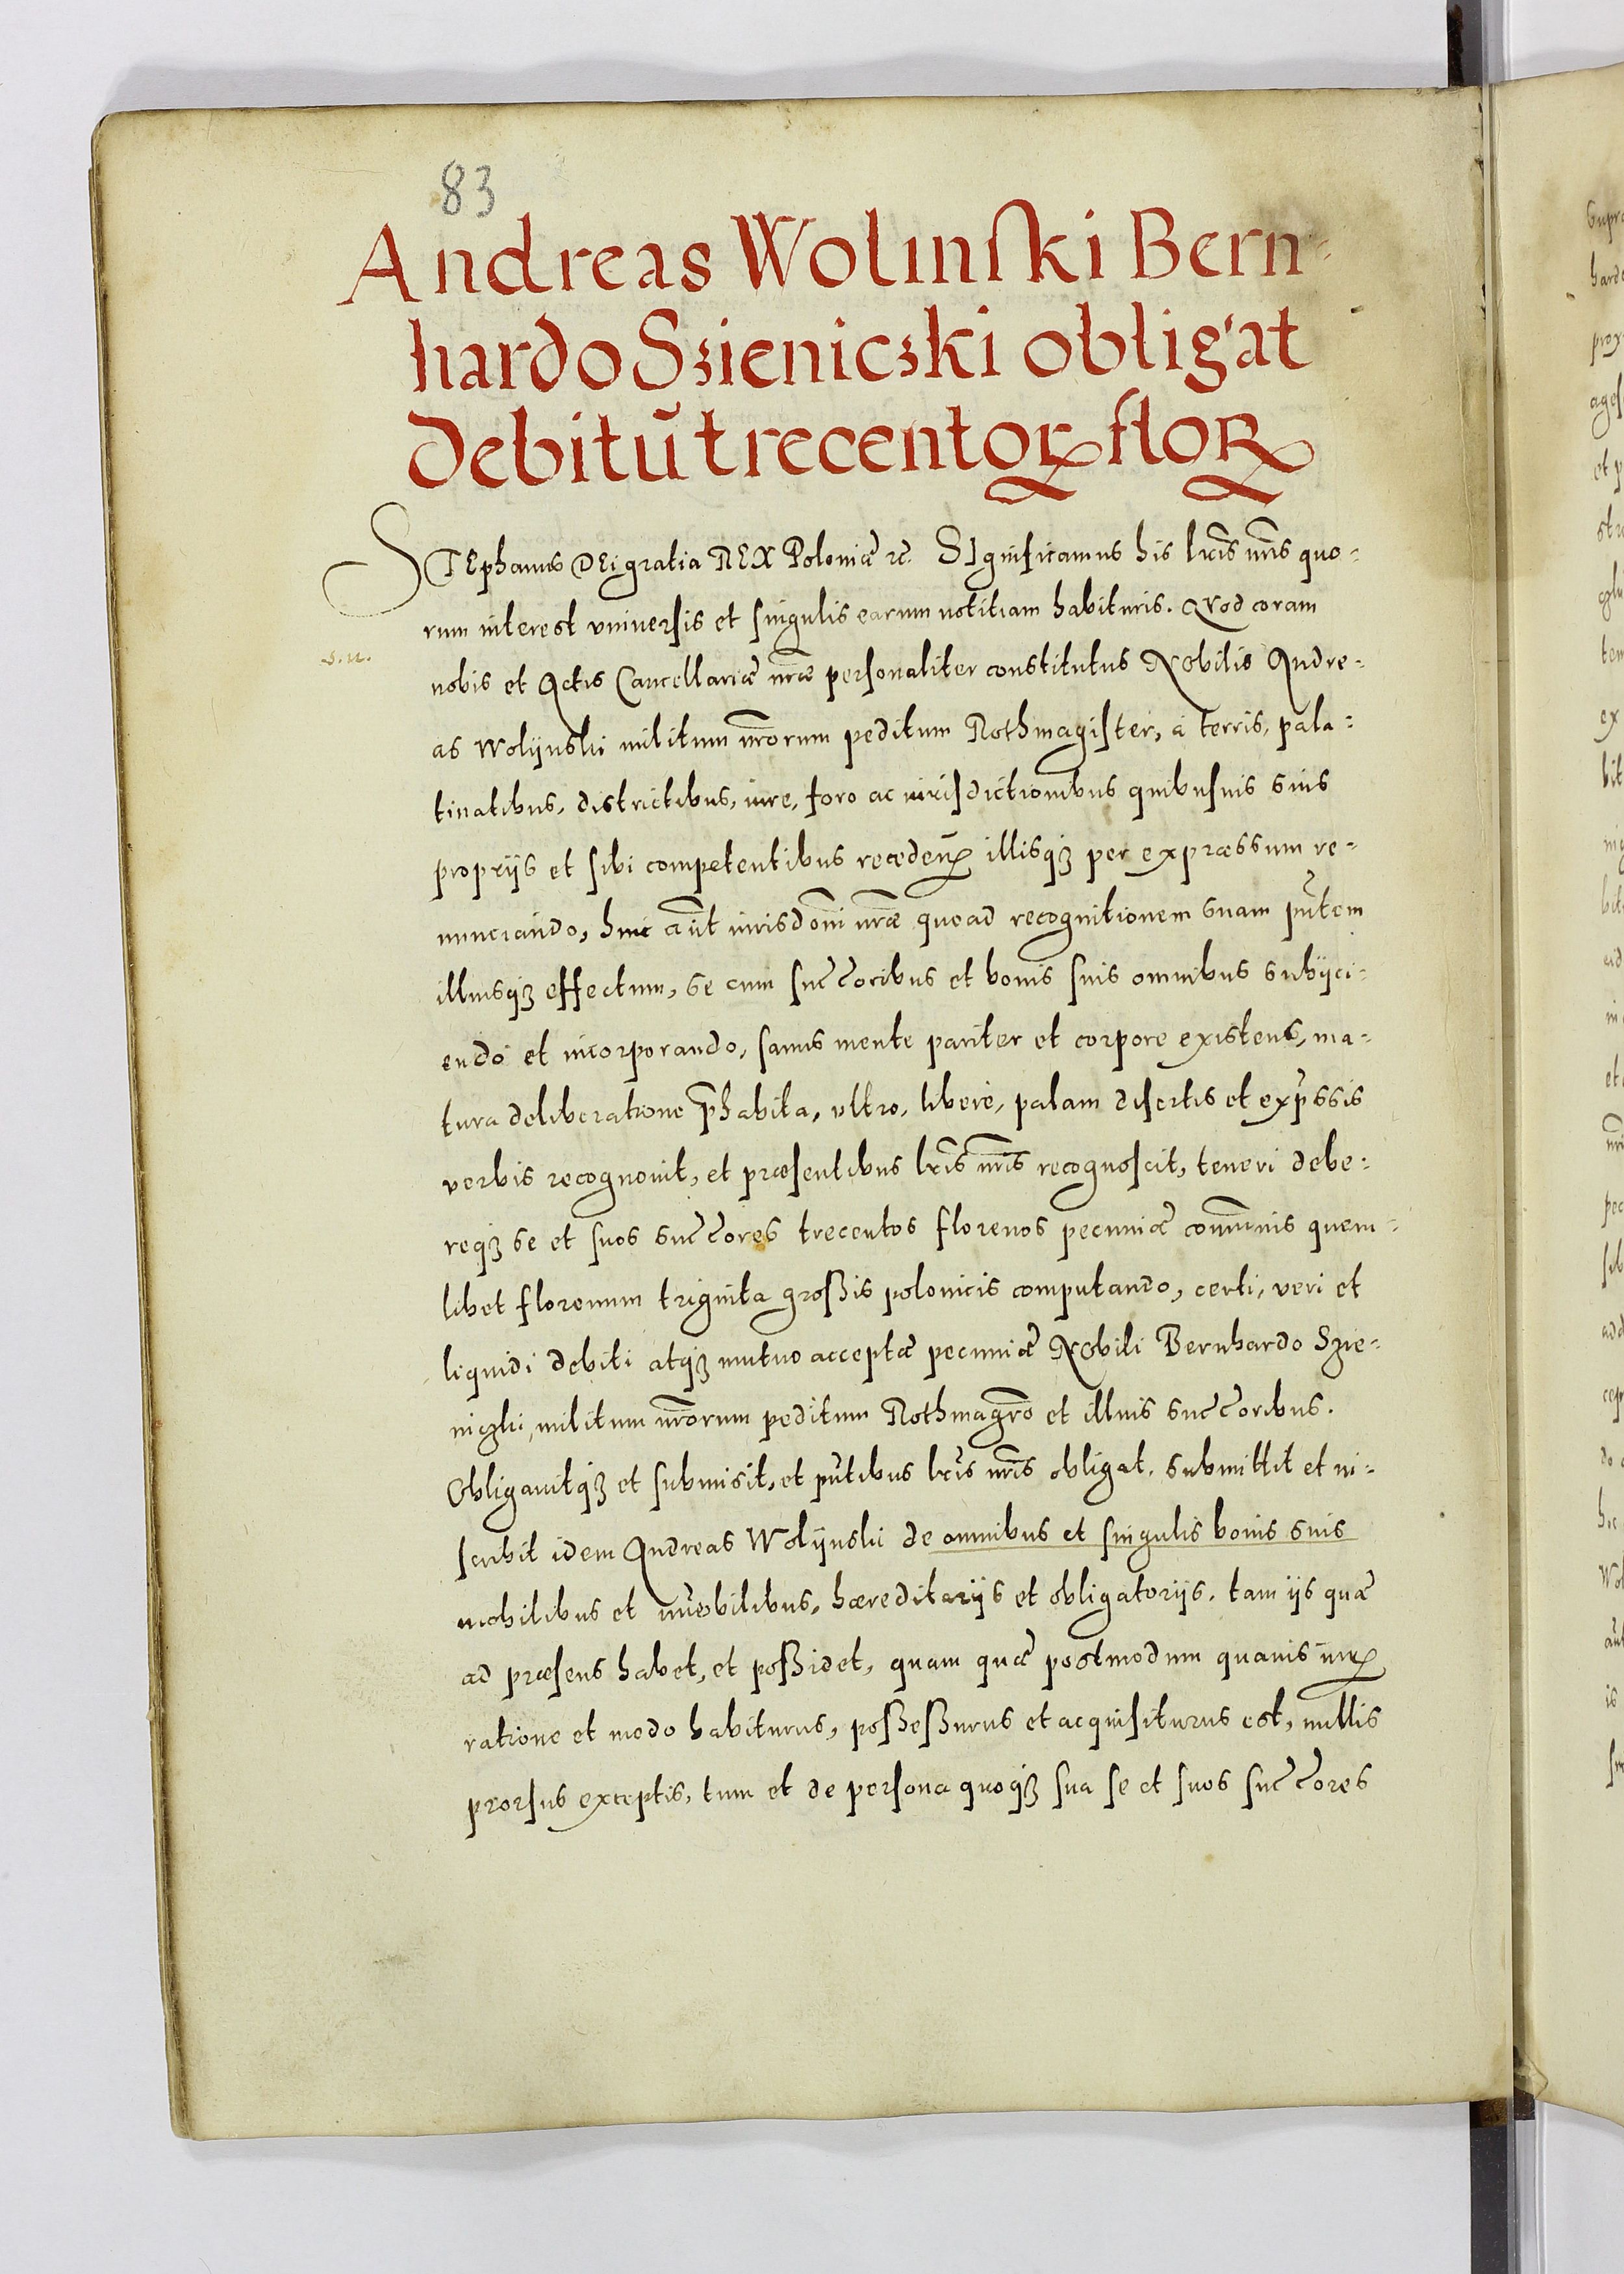 83
Andreas Wolinſki Bern-
hardo Szieniczki obligat
debitū trecentoꝝ floꝝ
STEphanus DEi gratia REX Poloniæ ꝛc̃. SIgnificamus his lr̃is nr̃is quo-
rum interest vniuerſis et ſingulis earum notitiam habituris. Qvod coram
s. n.
nobis et Actis Cancellariæ nr̃æ perſonaliter constitutus NObilis Andre-
as Wolijnski militum nr̃orum peditum Rothmagiſter, à terris, pala-
tinatibus, districtibus, iure, foro ac iurisdictionibus quibusuis suis
proprijs et ſibi competentibus recedeñ illisqꝫ per expræssum re-
nunciando, huic aũt iurisdõni nr̃æ quoad recognitionem suam pñtem
illiusqꝫ effectum, se cum ſuc̃c̃oribus et bonis ſuis omnibus subijci-
endo et incorporando, ſanus mente pariter et corpore existens, ma-
tura deliberatione p̃habita, vltro, liberè, palam diſertis et exp̃ssis
verbis recognouit, et præſentibus lr̃is nr̃is recognoſcit, teneri debe-
reqꝫ se et ſuos suc̃c̃ores trecentos florenos pecuniæ com̃unis quem-
libet florenum triginta großis polonicis computando, certi, veri et
liquidi debiti atqꝫ mutuo acceptæ pecuniæ NObili Bernhardo Szie-
niczki, militum nr̃orum peditum Rothmagr̃o et illius suc̃c̃oribus.
Obligauitqꝫ et ſubmisit, et pñtibus lr̃is nr̃is obligat, submittit et in-
ſcribit idem Andreas Wolijnski de omnibus et ſingulis bonis suis
mobilibus et im̃obilibus, hæreditarijs et obligatorijs, tam ijs quæ
ad præsens habet, et poßidet, quam quæ postmodum quauis
ratione et modo habiturus, poßeßurus et acquiſiturus est, nullis
prorſus exceptis, tum et de perſona quoqꝫ ſua ſe et ſuos ſuc̃c̃ores